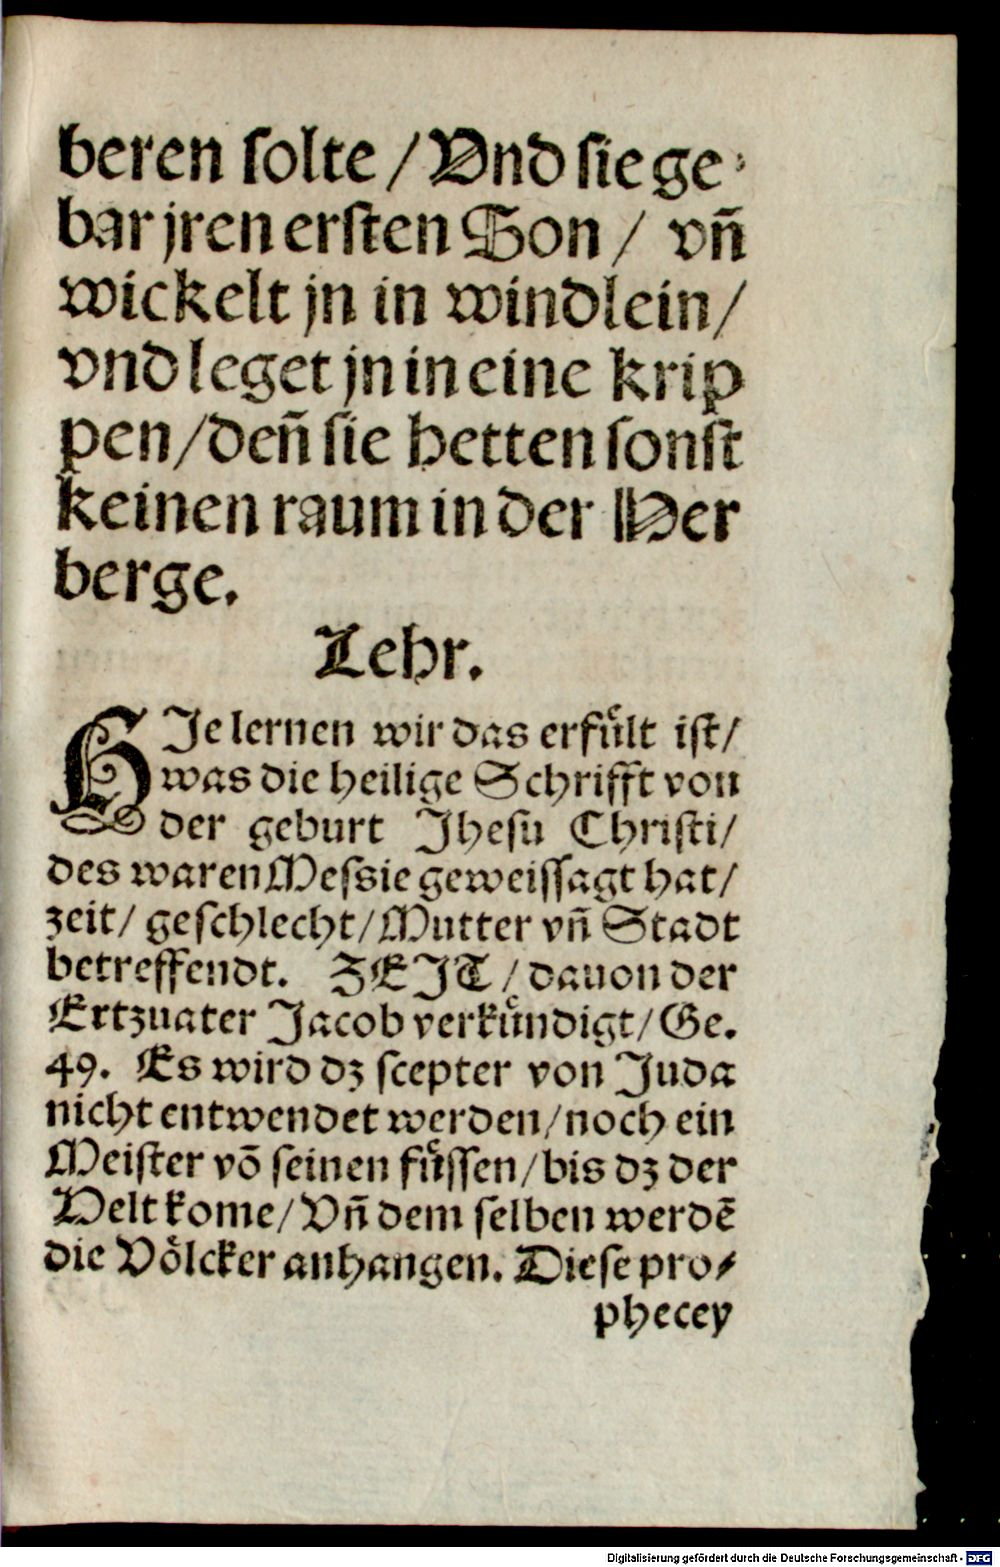 beren ſolte / Vnd ſie ge⸗
bar jren erſten Son / vñ
wickelt jn in windlein /
vnd leget jn in eine krip
pen / deñ ſie hetten ſonſt
keinen raum in der Her
berge.
Lehr.
HIe lernen wir das erfuͤlt iſt /
was die heilige Schrifft von
der geburt Jheſu Chriſti /
des waren Meſsie geweiſſagt hat /
zeit / geſchlecht / Mutter vñ Stadt
betreffendt. ZEIT / dauon der
Ertzuater Jacob verkuͤndigt / Ge.
49. Es wird dz ſcepter von Juda
nicht entwendet werden / noch ein
Meiſter võ ſeinen fuͤſſen / bis dz der
Helt kome / Vñ dem ſelben werdẽ
die Voͤlcker anhangen. Dieſe pro⸗
phecey
Digitalisierung gefördert durch die Deutsche Forschungsgemeinschaft - DFG